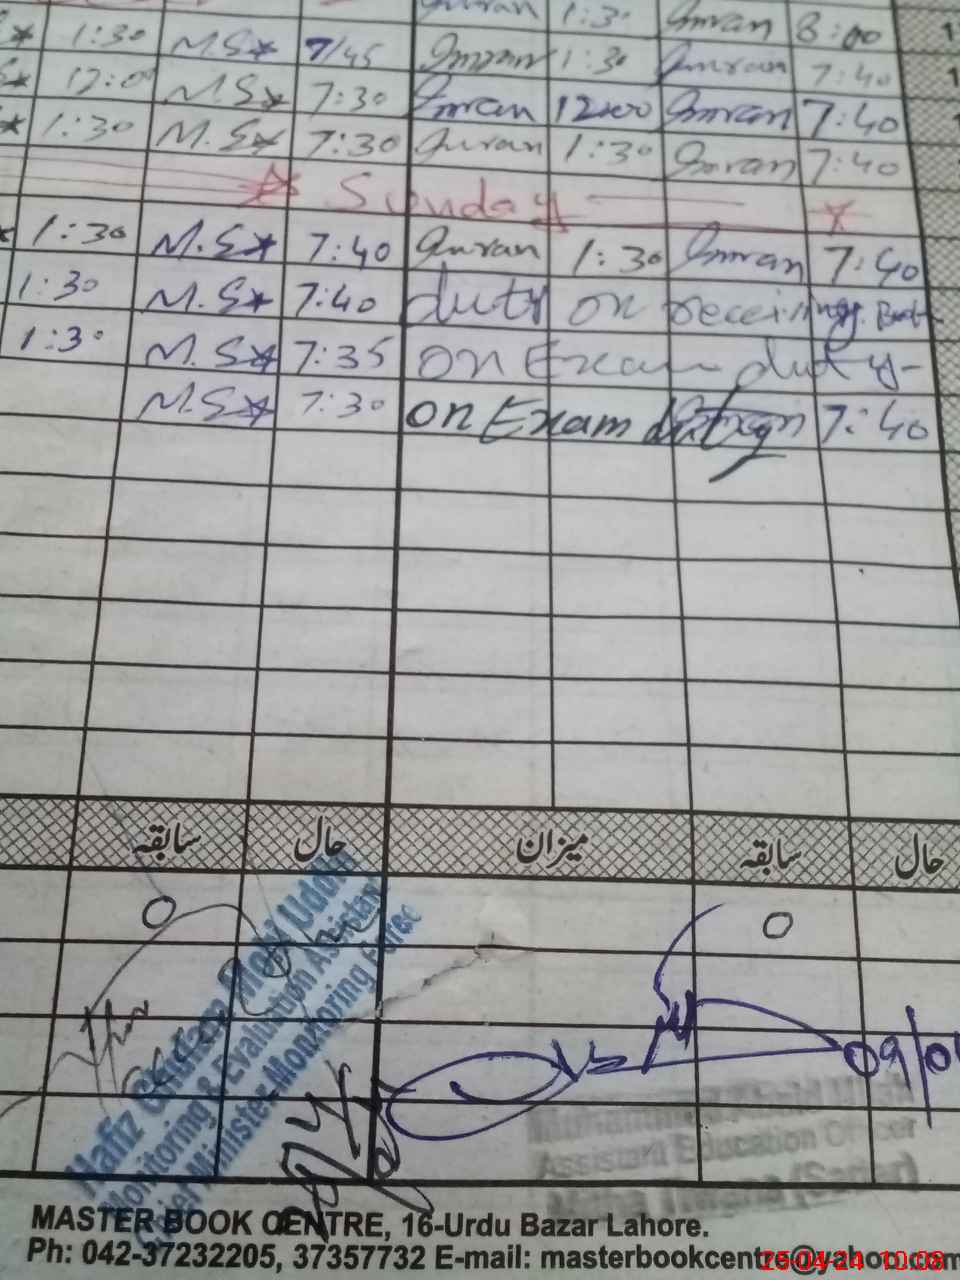 Imran 1:30 Imran 8:00
1:30 M.S* 7/45 Imran 1:30 Imran 7:40
12:00 M.S* 7:30 Imran 12:00 Imran 7:40
1:30 M.S* 7:30 Imran 1:30 Imran 7:40
Sunday
1:30 M.S* 7:40 Imran 1:30 Imran 7:40
1:30 M.S* 7:40 duty on receiving
1:30 M.S* 7:35 on Exam duty
M.S* 7:30 on Exam duty 7:40
سابقہ حال میزان سابقہ حال
0 0
Hafiz Ghulam Mohi Uddin
Monitoring & Evaluation Assistant
Chief Minister Monitoring Force
09/0
Assistant Education Officer
MASTER BOOK CENTRE, 16-Urdu Bazar Lahore.
Ph: 042-37232205, 37357732 E-mail: masterbookcentre@yahoo.com
25-04-24 10:08